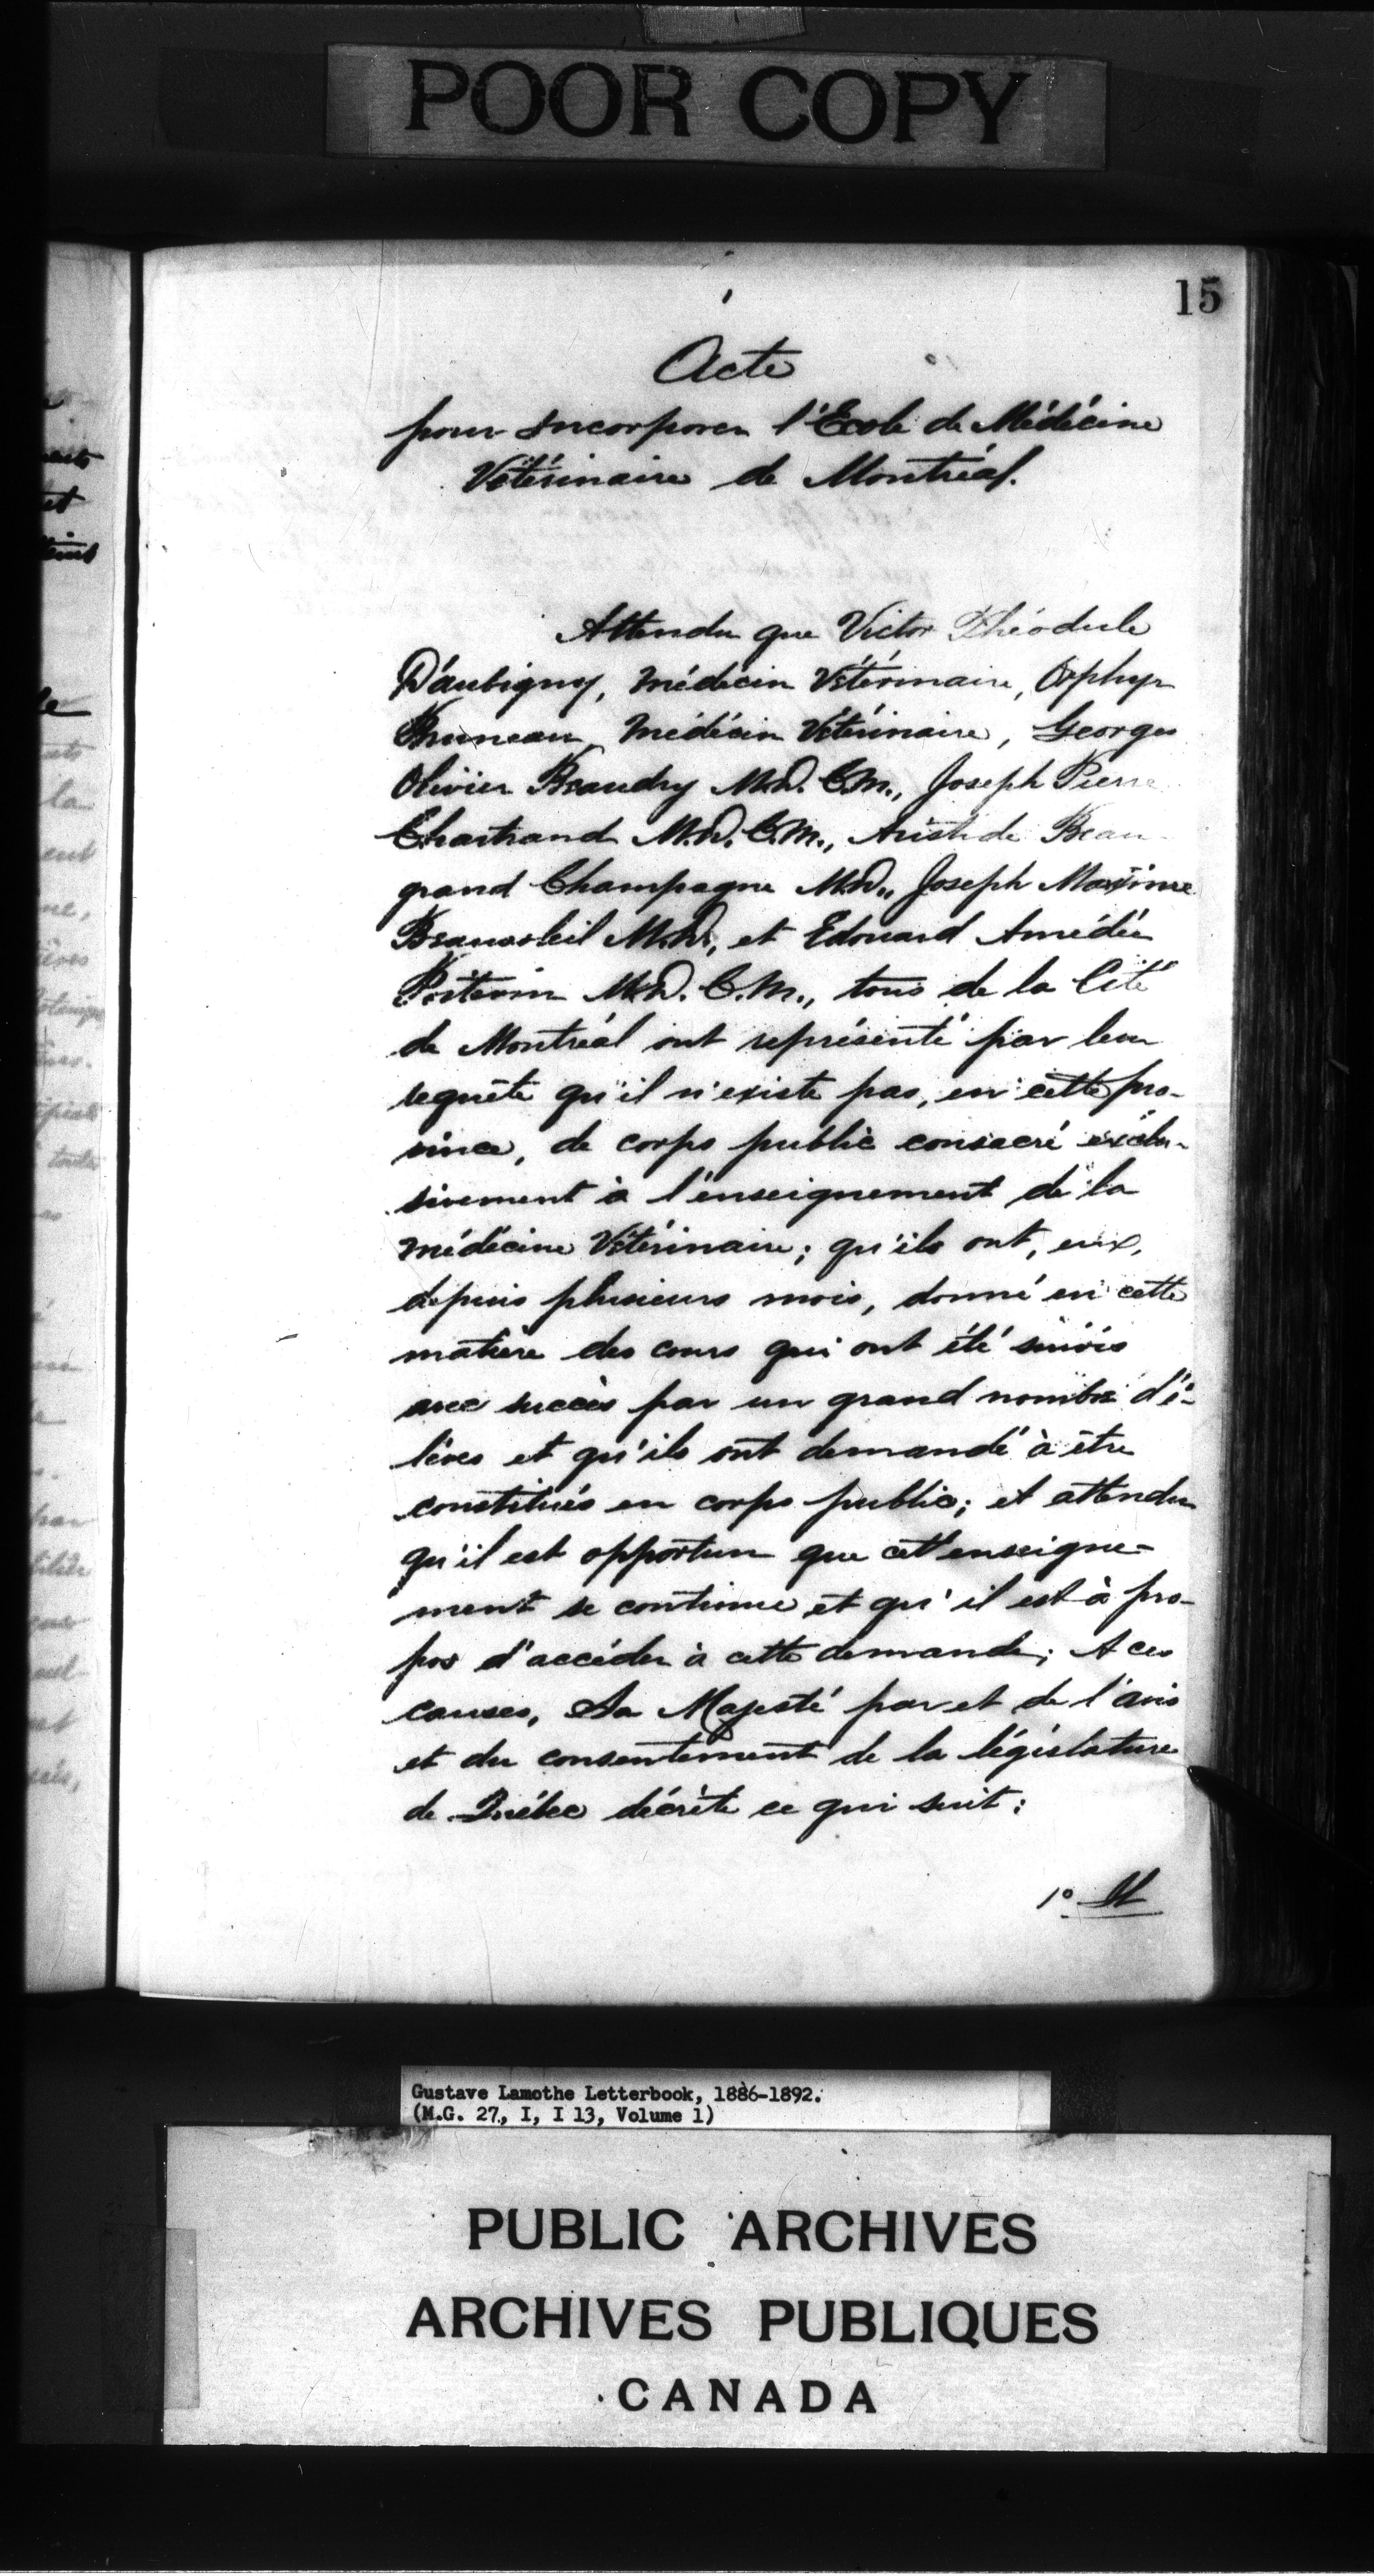 POOR COPY
15
Acte
pour Incorporer l'Ecole de Médécine
Vétérinaire de Montréal.
Attendu que Victor Théodule
D'aubigny, Médecin Vétérinaire, Orphyr
Bruneau, Médécin Vétérinaire, Georges
Olivier Beaudry M.D. C.M., Joseph Pierre
Chartrand M.D. C.M., Aristide Beau-
grand Champagne M.D., Joseph Maxime
Beausoleil M.D., et Edouard Amédée
Poitevin M.D. C.M., tous de la Cité
de Montréal ont représenté par leur
requête qu'il n'existe pas, en cette pro-
vince, de corps public consacré exclu-
sivement à l'enseignement de la
Médécine Vétérinaire; qu'ils ont, eux,
depuis plusieurs mois, donné en cette
matière des cours qui ont été suivis
avec succès par un grand nombre d'é-
lèves et qu'ils ont demandé à être
constitués en corps public; et attendu
qu'il est opportun que cet enseigne-
ment se continue et qu'il est à pro-
pos d'accéder à cette demande; A ces
causes, Sa Majesté par et de l'avis
et du consentement de la législature
de Québec décrète ce qui suit:
1º
Gustave Lamothe Letterbook, 1886-1892.
(M.G. 27, I, I 13, Volume 1)
PUBLIC ARCHIVES
ARCHIVES PUBLIQUES
CANADA